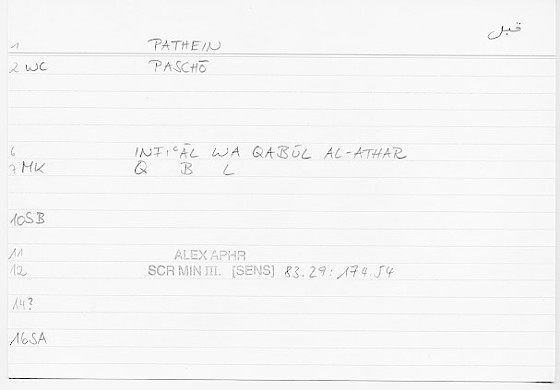 قبل
1 PATHEIN
2 WC PASCHŌ
6 INFIᶜĀL WA QABŪL AL-ATHAR
7 MK Q B L
10 SB
11 ALEX APHR
12 SCR MIN III. [SENS] 83.29:174.54
14?
16 SA